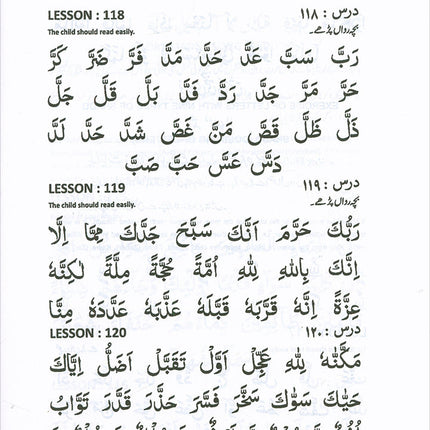 LESSON : 118 درس : ١١٨
The child should read easily. بچہ رواں پڑھے۔
رَبَّ سَبَّ عَدَّ حَدَّ مَدَّ فَرَّ ضَرَّ كَرَّ
حَرَّ مَرَّ جَدَّ رَدَّ فَدَّ بَلَّ قَلَّ جَلَّ
ذَلَّ ظَلَّ قَصَّ مَنَّ غَصَّ شَدَّ حَدَّ لَدَّ
دَسَّ عَسَّ حَبَّ صَبَّ
LESSON : 119 درس : ١١٩
The child should read easily. بچہ رواں پڑھے۔
رَبُّكَ حَرَّمَ اَنَّكَ سَبَّحَ جَدُّكَ مِمَّا اِلَّا
اِنَّكَ بِاللهِ لِلّٰهِ اُمَّةً حُجَّةً مِلَّةً لٰكِنَّهٗ
عِزَّةً اِنَّهٗ قَرَّبَهٗ قَبَّلَهٗ عَذَّبَهٗ عَدَّدَهٗ مِنَّا
LESSON : 120 درس : ١٢٠
مَكَّنّٰهُ لِلّٰهِ عَجِّلْ اَوَّلُ تَقَبَّلْ اَضَلُّ اِيَّاكَ
حَيَّاكَ سَوّٰكَ سَخَّرَ فَسَّرَ حَذَّرَ قَدَّرَ تَوَّابُ